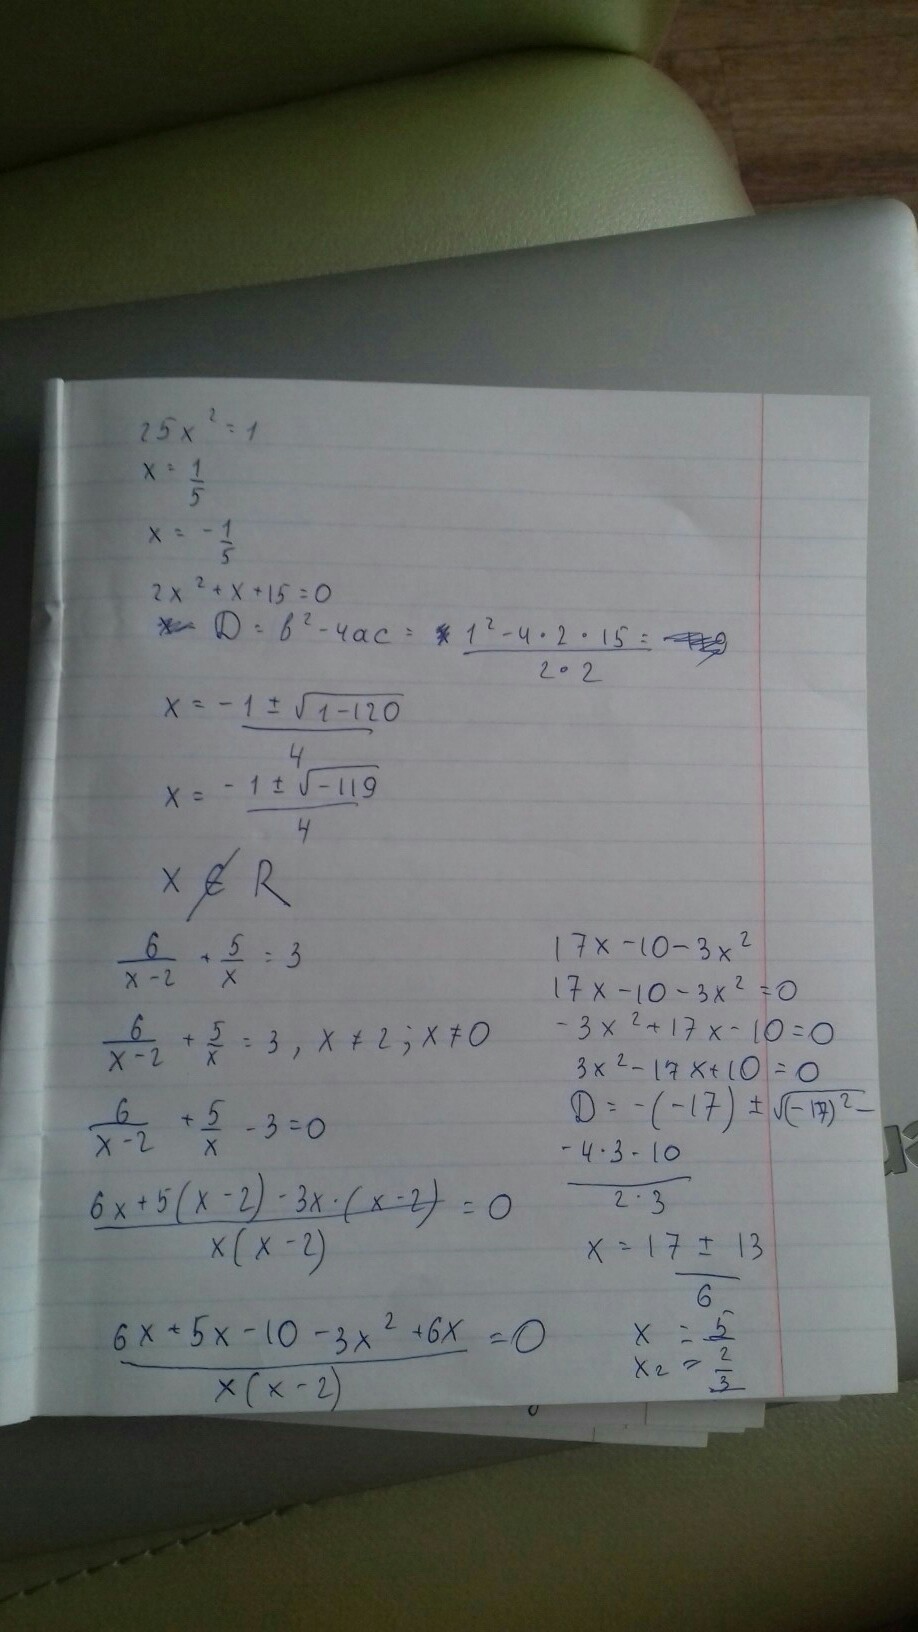 25x² = 1
x = 1/5
x = -1/5
2x² + x + 15 = 0
D = b² - 4ac = (1² - 4 · 2 · 15)/(2 · 2) =
x = (-1 ± √(1 - 120))/4
x = (-1 ± √(-119))/4
x ∉ R
6/(x - 2) + 5/x = 3
6/(x - 2) + 5/x = 3, x ≠ 2; x ≠ 0
6/(x - 2) + 5/x - 3 = 0
(6x + 5(x - 2) - 3x · (x - 2))/(x(x - 2)) = 0
(6x + 5x - 10 - 3x² + 6x)/(x(x - 2)) = 0
17x - 10 - 3x²
17x - 10 - 3x² = 0
-3x² + 17x - 10 = 0
3x² - 17x + 10 = 0
D = -(-17) ± √(-17)² -
- 4 · 3 · 10
2 · 3
x = (17 ± 13)/6
x = 5
x₂ = 2/3